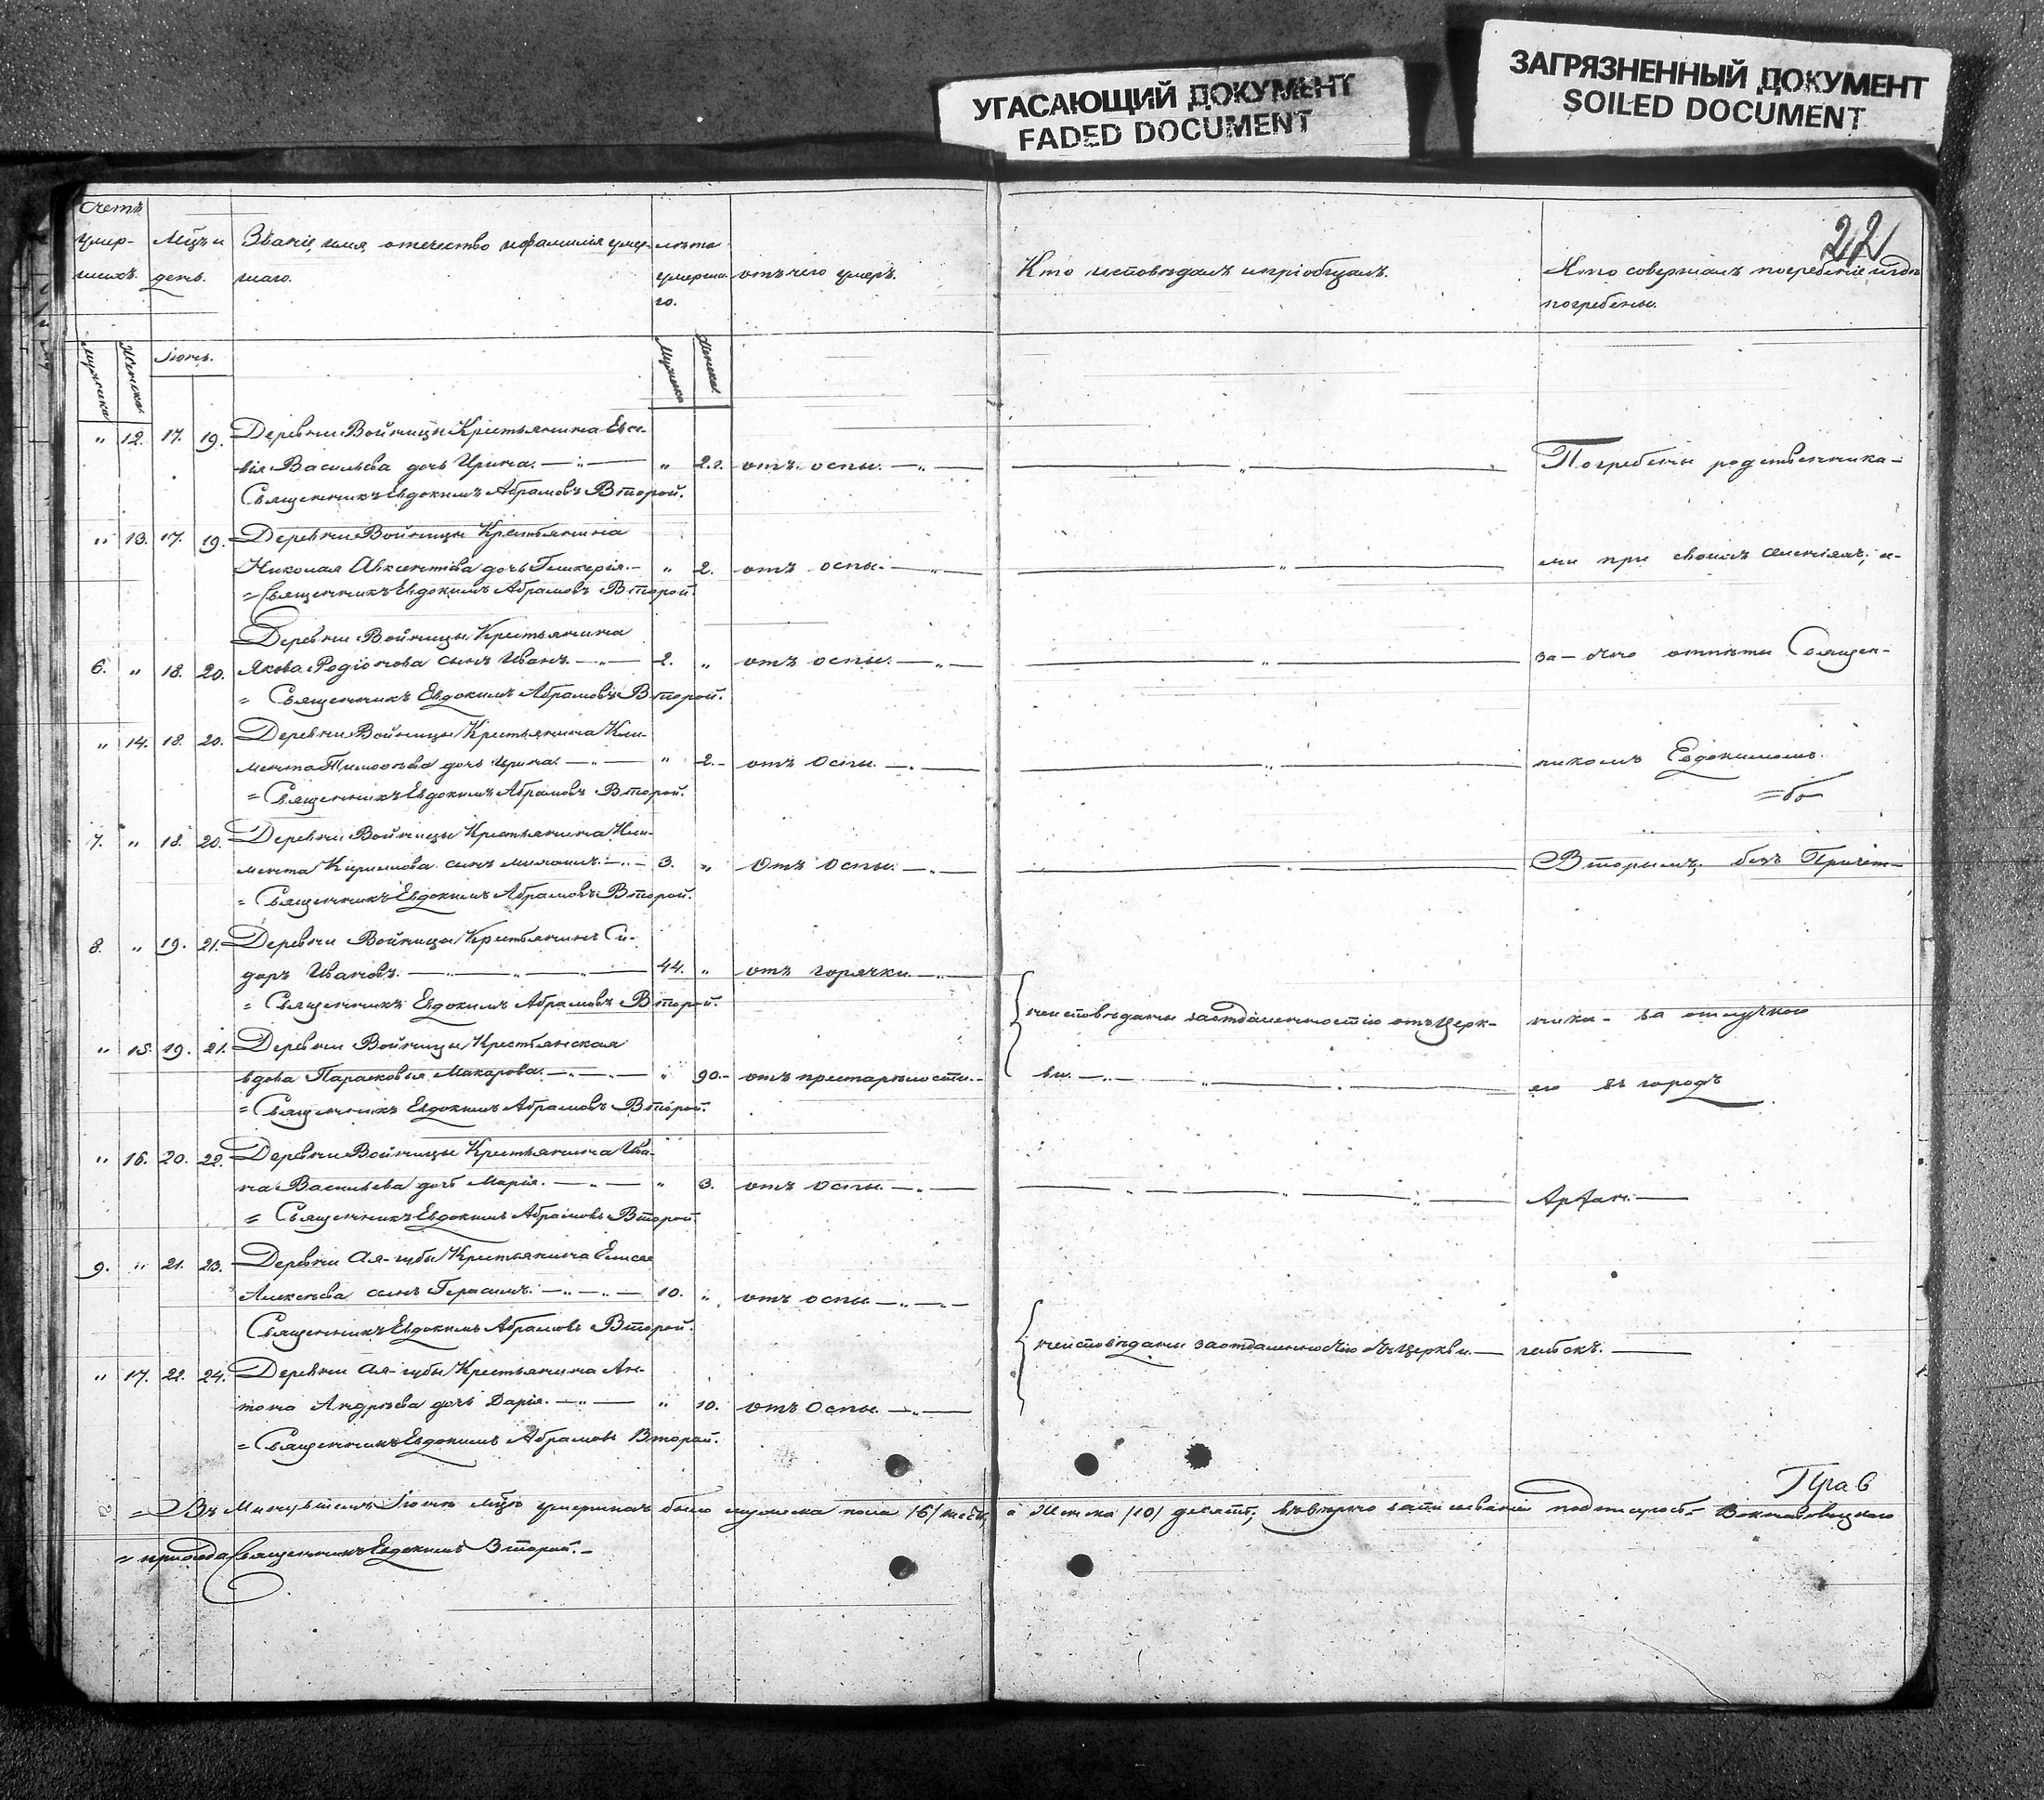 УГАСАЮЩИЙ ДОКУМЕНТ
FADED DOCUMENT
ЗАГРЯЗНЕННЫЙ ДОКУМЕНТ
SOILED DOCUMENT
22
Счетъ умер- шихъ.
Мѣцъ и день.
Званіе, имя, отечество и фамилія умер- шаго.
лѣта умерша- го.
отъ чего умеръ.
Кто исповѣдалъ и пріобщалъ.
Кто совершалъ погребеніе и гдѣ погребены.
Мужеска Женска
Іюнь.
Мужеска Женска
" 12. 17. 19. Деревни Войницы Крестьянина Евсе-
вія Васильева дочь Ирина. " 2. отъ оспы. " Погребены родственника-
Священникъ Евдокимъ Абрамовъ Второй.
" 13. 17. 19. Деревни Войницы Крестьянина
Николая Авксентіева дочь Гликерія. " 2. отъ оспы. " ми при своихъ селеніяхъ, а-
= Священникъ Евдокимъ Абрамовъ Второй.
Деревни Войницы Крестьянина
6. " 18. 20. Якова Родіонова сынъ Иванъ. 2. " отъ оспы. " за-очно отпѣты Священ-
= Священникъ Евдокимъ Абрамовъ Второй.
" 14. 18. 20. Деревни Войницы Крестьянина Кли-
мента Тимоѳѣева дочь Ирина. " 2. отъ Оспы. " никомъ Евдокимомъ.
= Священникъ Евдокимъ Абрамовъ Второй.
7. " 18. 20. Деревни Войницы Крестьянина Кли-
мента Кирилова сынъ 3. " Отъ Оспы. " Вторымъ, безъ Причет-
= Священникъ Евдокимъ Абрамовъ Второй.
8. " 19. 21. Деревни Войницы Крестьянинъ Си-
доръ Ивановъ. 44. " отъ горячки.
= Священникъ Евдокимъ Абрамовъ Второй.
неисповѣданы заотдаленностію отъ Церк- ника- за отлучкою
" 15. 19. 21. Деревни Войницы Крестьянская
вдова Парасковья Макарова. " 90. отъ престарѣлости. ви. его въ городъ
= Священникъ Евдокимъ Абрамовъ Второй.
" 16. 20. 22. Деревни Войницы Крестьянина Ива-
на Васильева дочь Марія. " 3. отъ Оспы. " Архан-
= Священникъ Евдокимъ Абрамовъ Второй.
9. " 21. 23. Деревни Ая-губы Крестьянина Елисея
Алексѣева сынъ Герасимъ. 10. " отъ оспы
Священникъ Евдокимъ Абрамовъ Второй.
неисповѣданы заотдаленностію Церкви. гельскъ.
" 17. 22. 24. Деревни Ая-губы Крестьянина Ан-
тона Андрѣева дочь Дарія. " 10. отъ Оспы.
= Священникъ Евдокимъ Абрамовъ Второй.
= Въ Минувшемъ Іюнѣ мѣцѣ умершихъ было мужеска пола /6/ шесть, а Женска /10/ десять,
= прихода Священникъ Евдокимъ Второй.